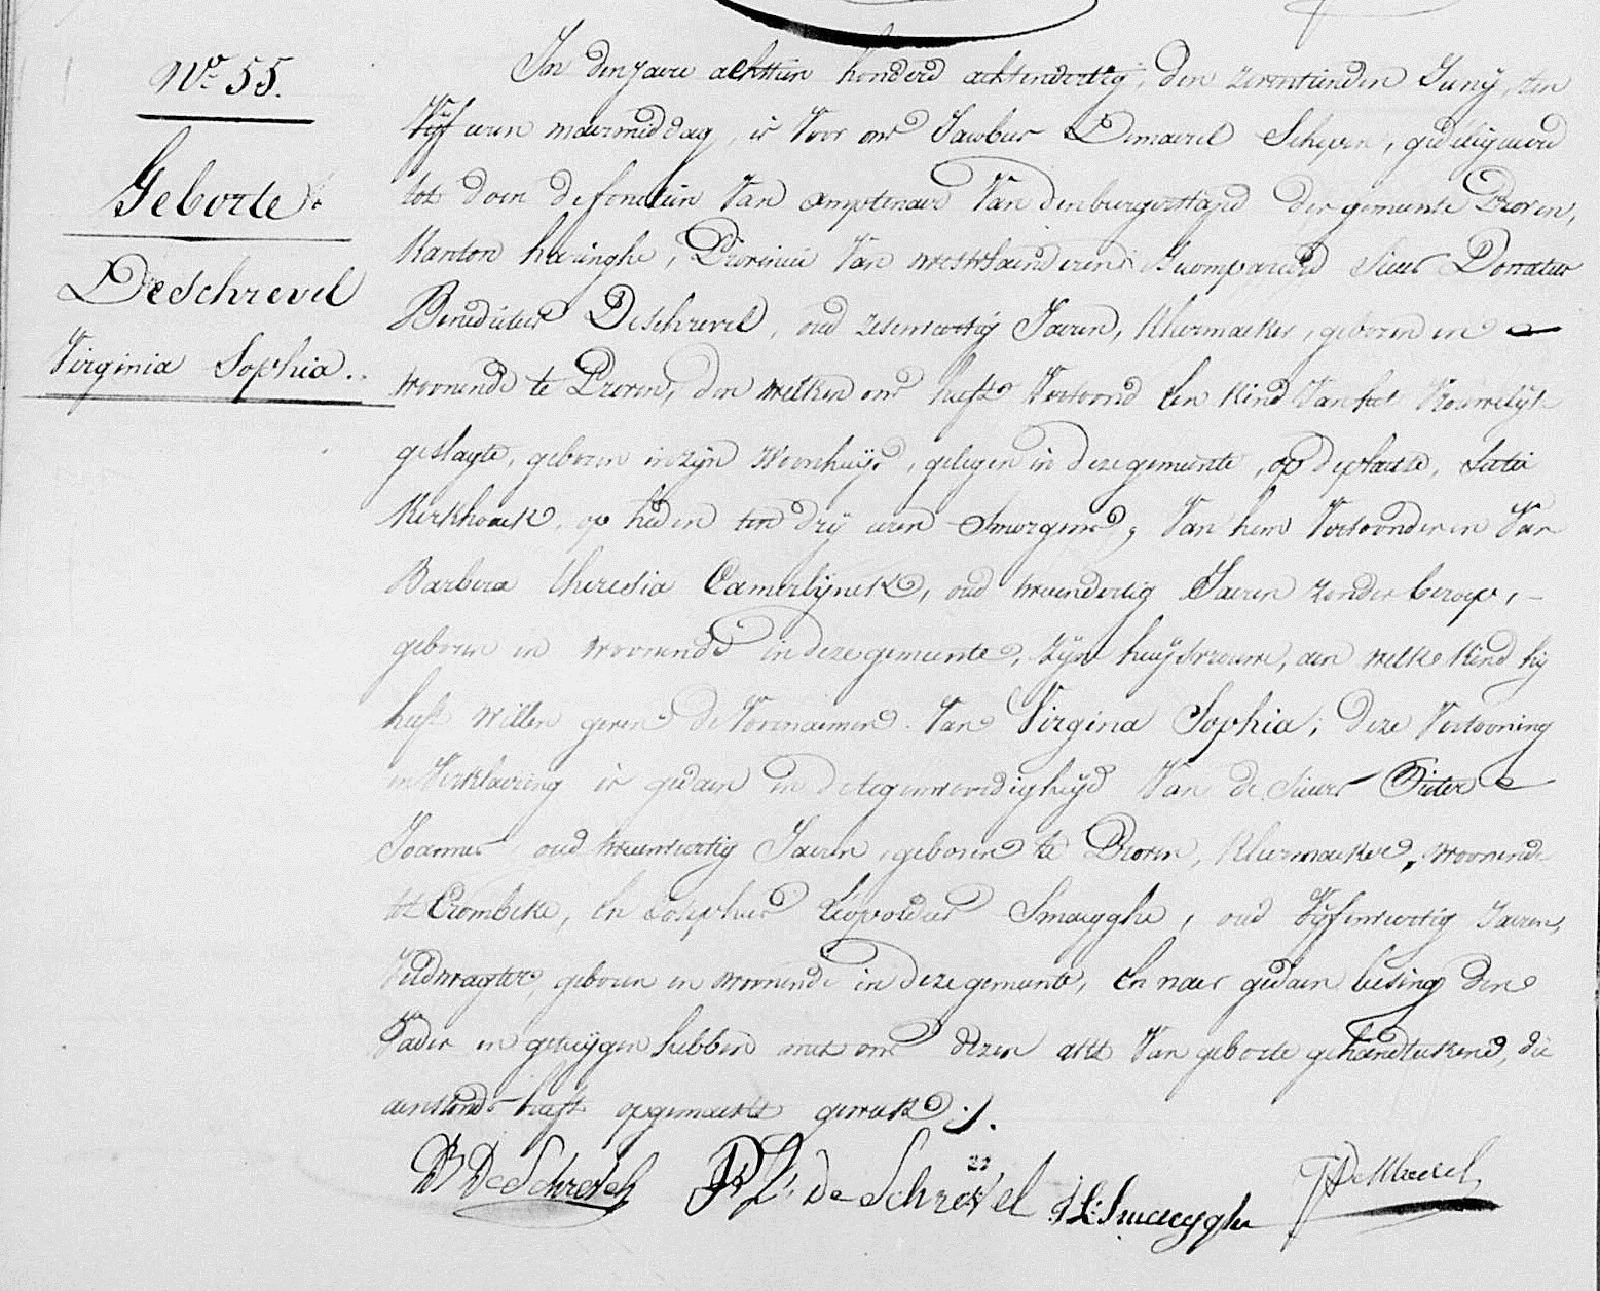 N° 55.
Geborte
Deschrevel
Virginia Sophia.
In den jaere achttien honderd achtendertig, den zeventienden Juny, ten
Vyf uren naermiddag, is Voor ons Jacobus Demarel Schepen, gedelegueerd
tot doen de fonctien Van amptenaer Van den burgerstand der gemeente Proven,
Kanton haringhe, Provincie Van Westvlaenderen gecompareerd Sieur Donatus
Benedictus Deschrevel, oud zesenveertig Jaeren, Kleermaeker, geboren en
woonende te Proven, den welken ons heeft Vertoond een kind Van het Vrouwelyk
geslagte, geboren in zyn woonhuys, gelegen in deze gemeente, op de plaetse,
Kerkhoek op heden ten dry uren Smorgens, Van hem Vertoonder en Van
Barbera theresia Camerlynck, oud tweendertig Jaeren zonder beroep,
geboren en woonende in deze gemeente, zyne huysvrouwe, aen welke kind hy
heeft willen geven de Voornaemen Van Virgina Sophia; deze Vertooning
en Verklaering is gedaen in de tegenwoordigheyd Van de Sieurs Pieter
Joannes oud Jaeren, geboren te Proven, Kleermaeker, woonende
te Crombeke, en Josephus Leopoldus Smaegghe, oud Vyfenveertig Jaeren,
Veldwagter, geboren en woonende in deze gemeente, en naer gedaen lesing den
Vader en getuygen hebben met ons dezen akt Van geborte gehandteekend, die
aenstonds heeft opgemaekt geweest ./.
D B DeSchrevel P L: De Schrevel J L: Smaegghe J DeMarel